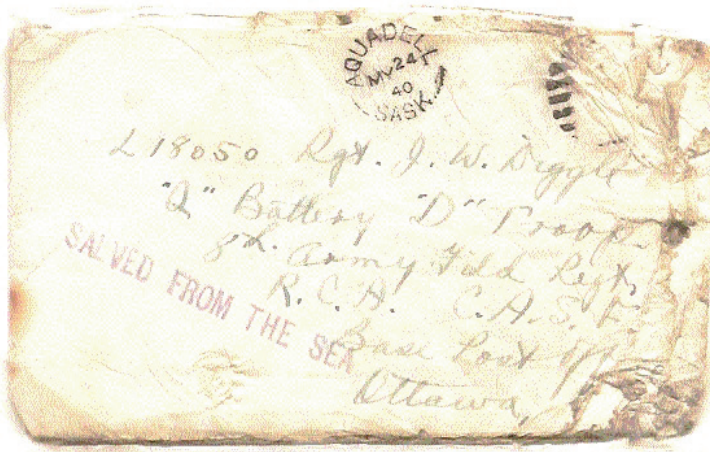 AQUADELL
MY 24
40
SASK.
L 18050 Rgt. J. W. Diggle
"Q" Battery "D" Troop.
8th Army Fild Regt,
R. C. A. C. A. S. F.
Base Post
Ottawa,
SALVED FROM THE SEA